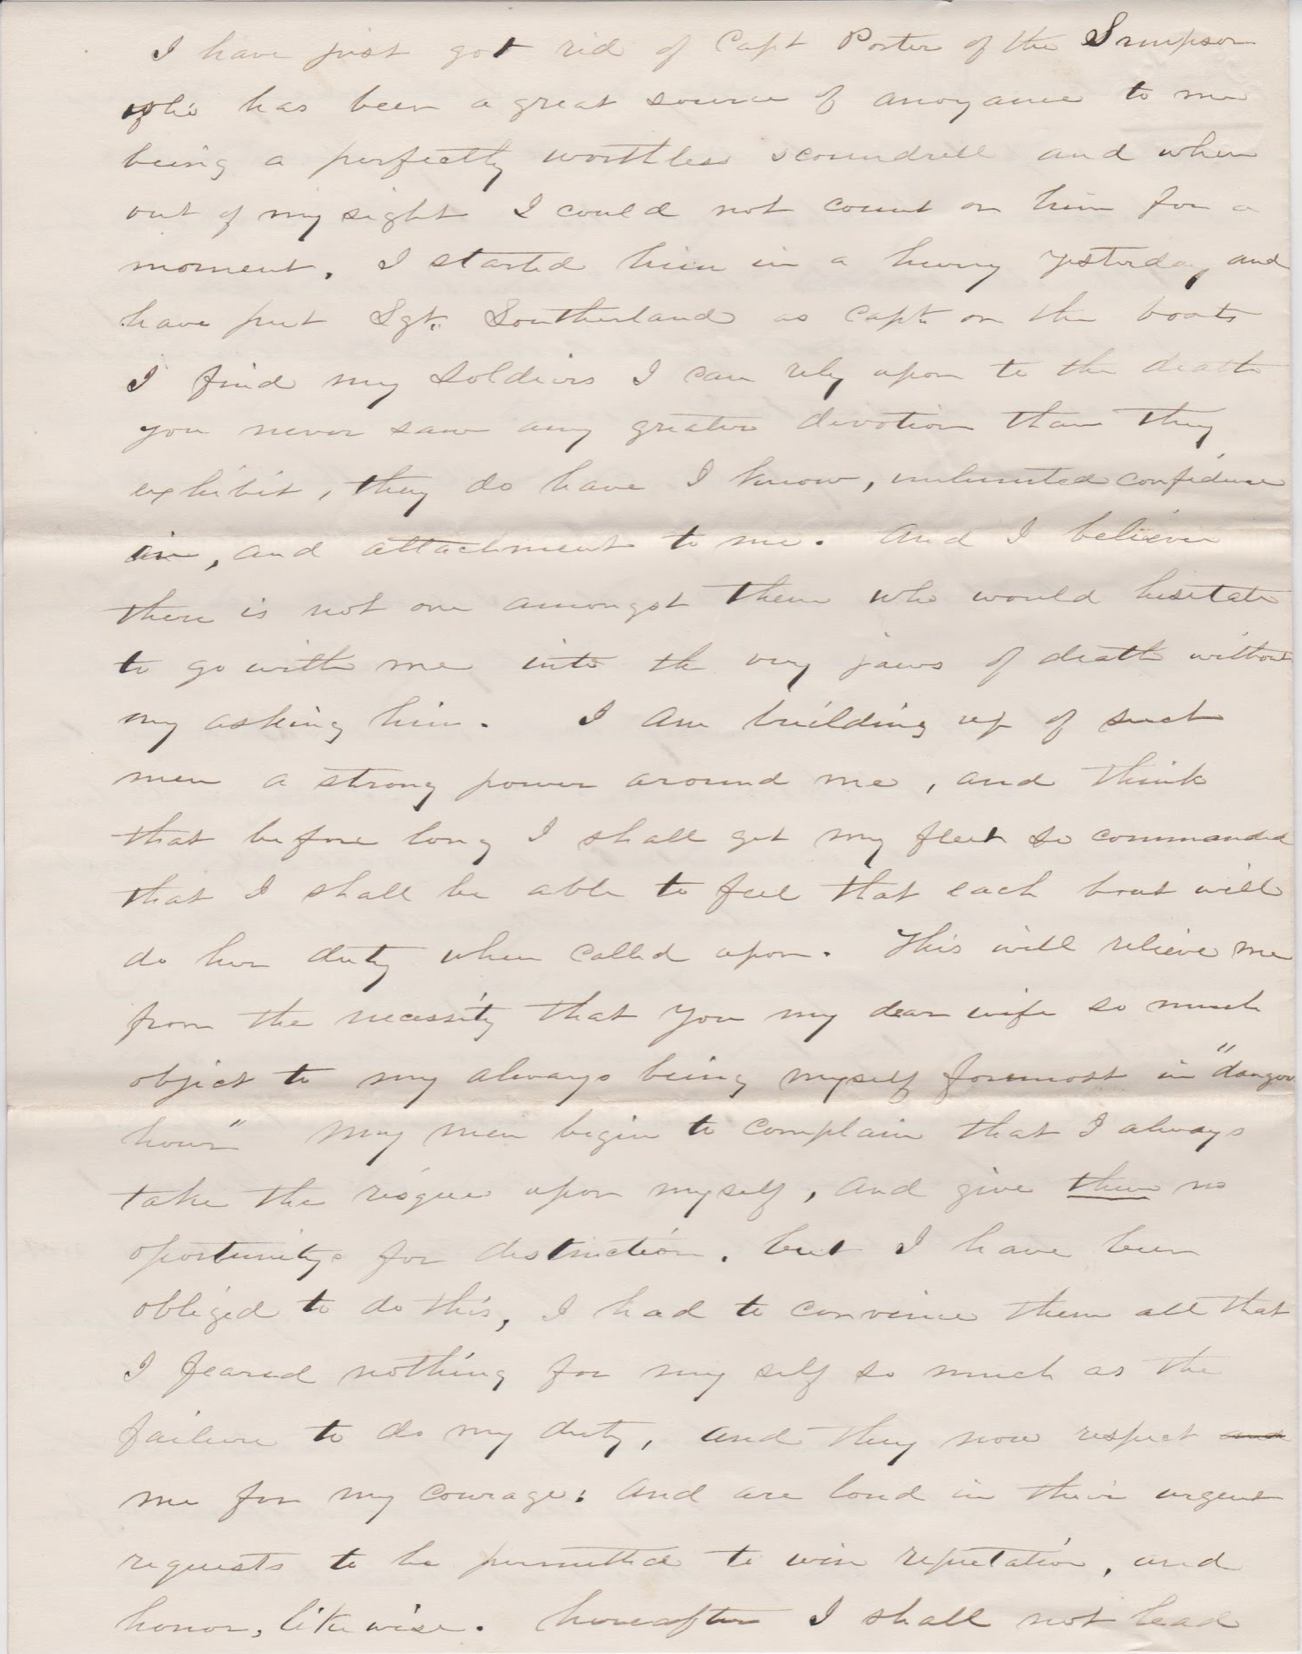 I have just got rid of Capt Porter of the Simpson
who has been a great source of anoyance to me
being a perfectly worthless scoundrell and when
out of my sight I could not count on him for a
moment. I started him in a hurry yesterday and
have put Sgt. Southerland as Capt on the boats
I find my soldiers I can rely upon to the death
you never saw any greater devotion than they
exhibit, they do have I know, unlimited confidence
in, and attachment to me. And I believe
there is not one amongst them who would hesitate
to go with me into the very jaws of death without
my asking him. I am building up of such
men a strong power around me, and think
that before long I shall get my fleet so commanded
that I shall be able to feel that each boat will
do her duty when called upon. This will relieve me
from the necessity that you my dear wife so much
object to my always being myself foremost in "danger
hour" My men begin to complain that I always
take the risque upon myself, and give them no
oportunitys for distinction. but I have been
obliged to do this, I had to convince them all that
I feared nothing for my self so much as the
failure to do my duty, and they now respect and
me for my courage; and are loud in their urgent
requests to be permitted to win reputation, and
honor, likewise. hereafter I shall not lead